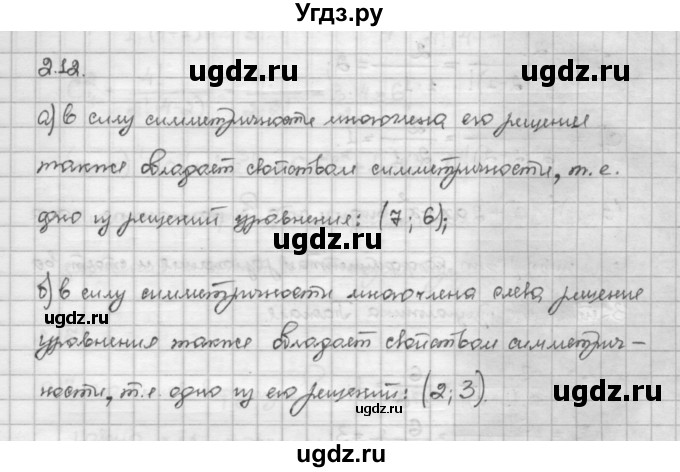 Угдз.ру
2.12.
ugdz.ru ugdz.ru
а) в силу симметричности многочлена его решение
также обладает свойством симметричности, т.е.
одно из решений уравнения: (7; 6);
ugdz.ru ugdz.ru
б) в силу симметричности многочлена слева, решение
ugdz.ru
уравнения также обладает свойством симметрич-
ugdz.ru
ности, т.е. одно из его решений: (2; 3).
ugdz.ru
ugdz.ru
Угдз.ру